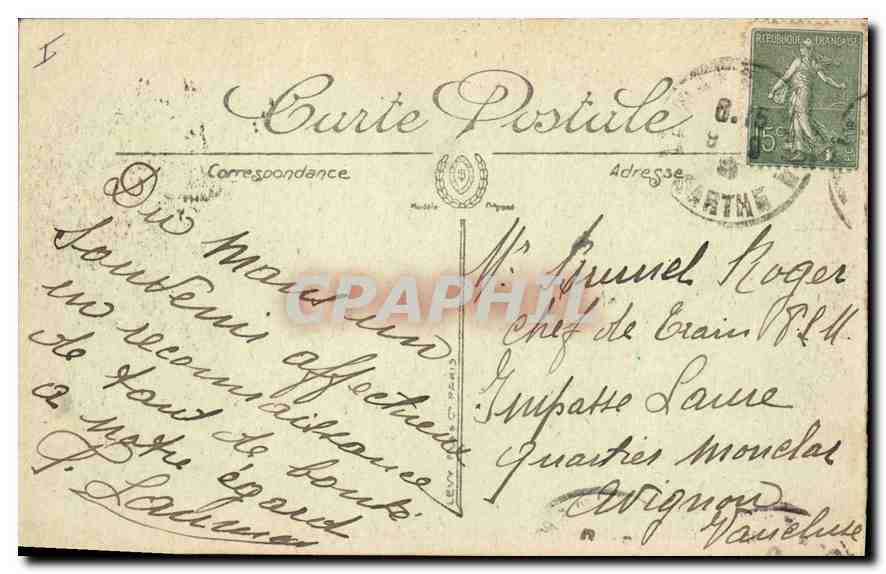 Carte Postale
Correspondance
Adresse
Modèle Déposé
REPUBLIQUE FRANÇAISE
15c
SARTHE
LEVY FILS & Cie PARIS
CPAPHIL
Du Mans un
souvenir affectueux
en reconnaissance
de tout de bonté
a notre égard
Mr Roger
chef de train P.L.M.
Impasse Laure
quartier Monclar
Avignon
Vaucluse